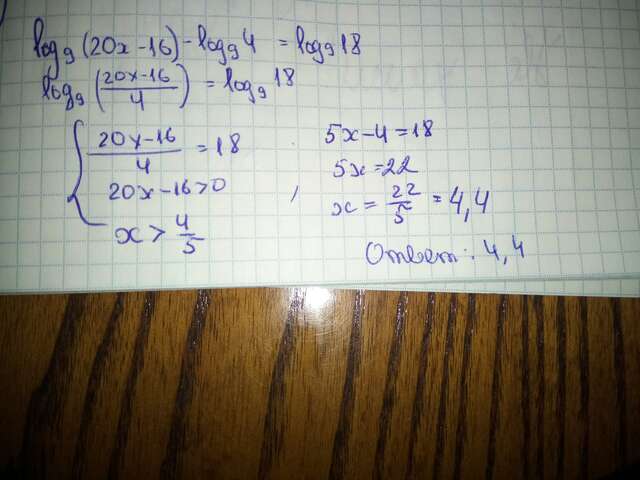 log₉(20x-16)-log₉4 = log₉18
log₉(20x-16/4) = log₉18
{20x-16/4 = 18
20x-16>0 ,
x > 4/5
5x-4=18
5x=22
x = 22/5 = 4,4
Ответ: 4,4